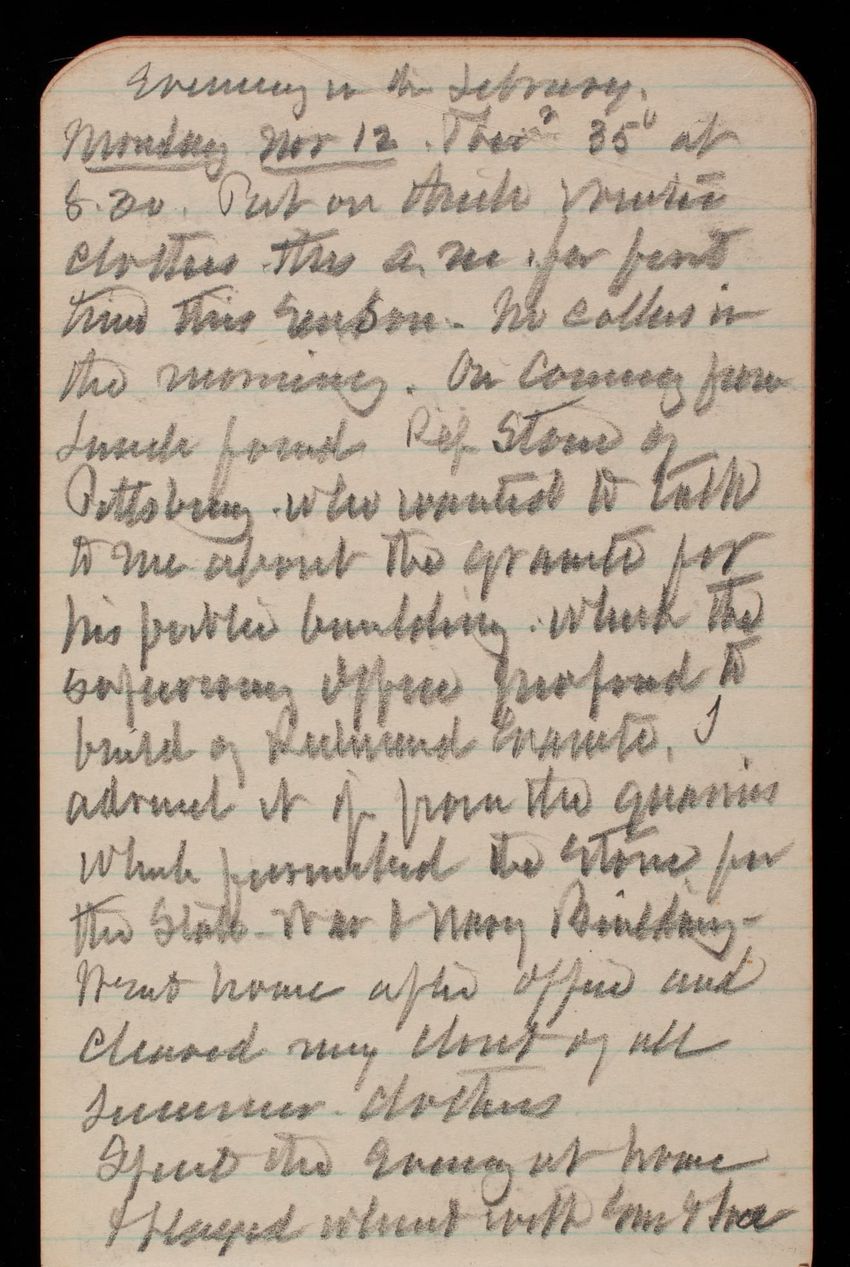 Evening in the Library.
Monday Nov 12. Ther 35° at
8.30. Put on thick winter
clothes this a.m. for first
time this season. No callers in
the morning. On coming from
Lunch found Rep Stone of
Pittsburg. who wanted to talk
to me about the granite for
his public building. which the
supervising office proposed to
build of Richmond Granite. I
advised it if from the quarries
which furnished the stone for
the State War & Navy Building-
Went home after office and
cleared my closet of all
summer clothes
Spent the Evening at home
& played whist with Em &